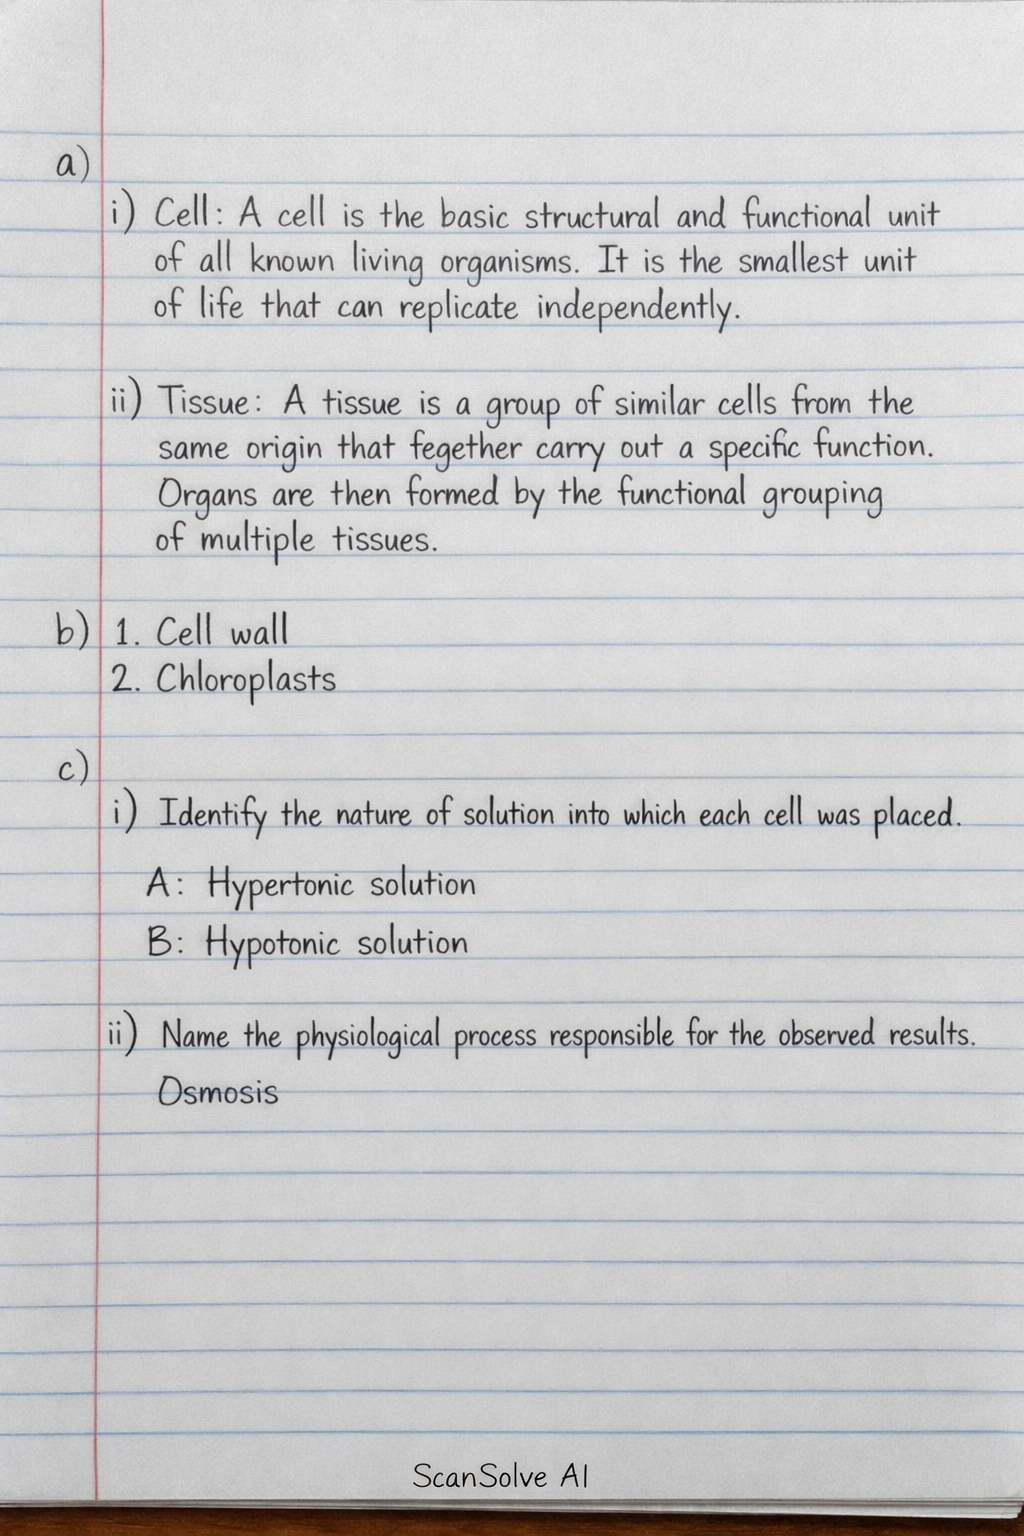 a)
i) Cell: A cell is the basic structural and functional unit
of all known living organisms. It is the smallest unit
of life that can replicate independently.
ii) Tissue: A tissue is a group of similar cells from the
same origin that fegether carry out a specific function.
Organs are then formed by the functional grouping
of multiple tissues.
b) 1. Cell wall
2. Chloroplasts
c)
i) Identify the nature of solution into which each cell was placed.
A: Hypertonic solution
B: Hypotonic solution
ii) Name the physiological process responsible for the observed results.
Osmosis
ScanSolve AI